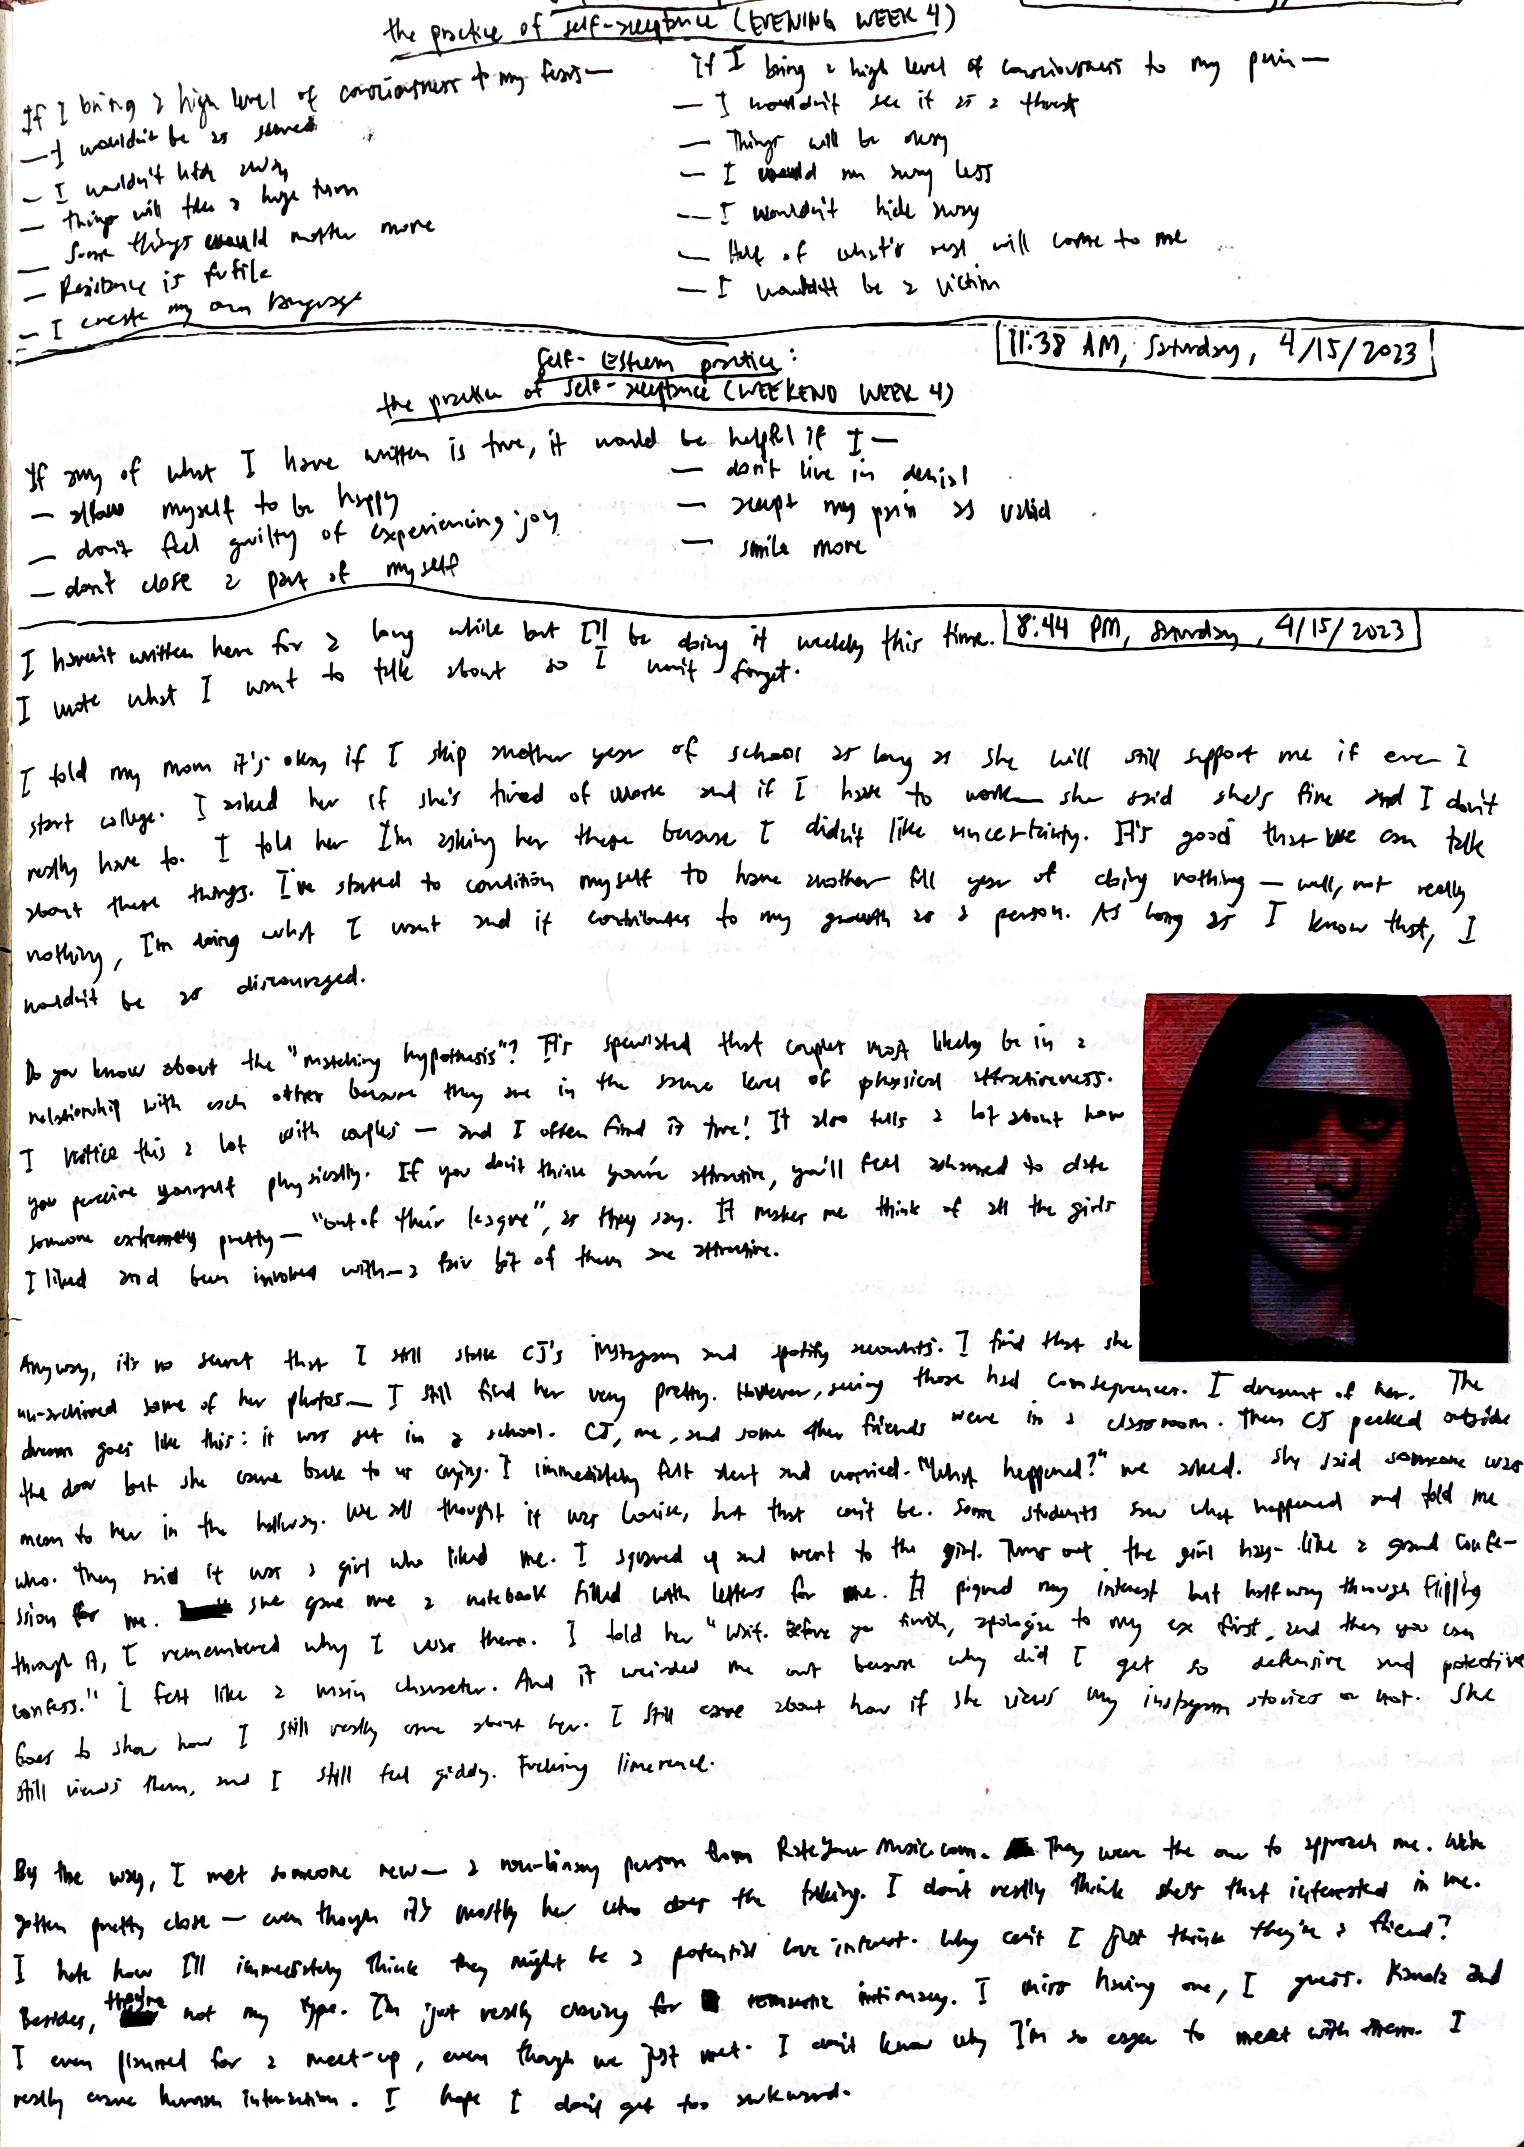 the practice of self-acceptance (EVENING WEEK 4)
If I bring a high level of consciousness to my fears—
— I wouldn't be as scared
— I wouldn't hide away
— Things will take a huge turn
— Some things would matter more
— Resistance is futile
— I create my own language
If I bring a high level of consciousness to my pain—
— I wouldn't see it as a threat
— Things will be okay
— I would run away less
— I wouldn't hide away
— Half of what's real will come to me
— I wouldn't be a victim
11:38 AM, Saturday, 4/15/2023
Self-Esteem practice:
the practice of self-acceptance (WEEKEND WEEK 4)
If any of what I have written is true, it would be helpful if I—
— allow myself to be happy
— don't feel guilty of experiencing joy
— don't close a part of myself
— don't live in denial
— accept my pain as valid
— smile more
8:44 PM, Saturday, 4/15/2023
I haven't written here for a long while but I'll be doing it weekly this time.
I wrote what I want to talk about so I won't forget.
I told my mom it's okay if I skip another year of school as long as she will still support me if ever I
start college. I asked her if she's tired of work and if I have to work— she said she's fine and I don't
really have to. I told her I'm asking her these because I didn't like uncertainty. It's good that we can talk
about these things. I've started to condition myself to have another full year of doing nothing — well, not really
nothing, I'm doing what I want and it contributes to my growth as a person. As long as I know that, I
wouldn't be as discouraged.
Do you know about the "matching hypothesis"? It's speculated that couples most likely be in a
relationship with each other because they are in the same level of physical attractiveness.
I notice this a lot with couples — and I often find it true! It also tells a lot about how
you perceive yourself physically. If you don't think you're attractive, you'll feel ashamed to date
someone extremely pretty— "out of their league", as they say. It makes me think of all the girls
I liked and been involved with— a fair bit of them are attractive.
Anyway, it's no secret that I still stalk CJ's instagram and spotify accounts. I find that she
un-archived some of her photos— I still find her very pretty. However, seeing those had consequences. I dreamt of her. The
dream goes like this: it was set in a school. CJ, me, and some other friends were in a classroom. Then CJ peeked outside
the door but she came back to us crying. I immediately felt alert and worried. "What happened?" we asked. She said someone was
mean to her in the hallway. We all thought it was Louise, but that can't be. Some students saw what happened and told me
who. They said it was a girl who liked me. I squared up and went to the girl. Turns out the girl has like a grand confe-
ssion for me. She gave me a notebook filled with letters for me. It piqued my interest but halfway through flipping
through it, I remembered why I was there. I told her "Wait. Before you finish, apologize to my ex first, and then you can
confess." I felt like a main character. And it weirded me out because why did I get so defensive and protective
Goes to show how I still really care about her. I still care about how if she views my instagram stories or not. She
still views them, and I still feel giddy. Fucking limerence.
By the way, I met someone new— a non-binary person from RateYourMusic.com. They were the one to approach me. We've
gotten pretty close — even though it's mostly her who does the talking. I don't really think she's that interested in me.
I hate how I'll immediately think they might be a potential love interest. Why can't I just think they're a friend?
Besides, they're not my type. I'm just really craving for romantic intimacy. I miss having one, I guess. and
I even planned for a meet-up, even though we just met. I don't know why I'm so eager to meet with them. I
really crave human interaction. I hope I don't get too awkward.